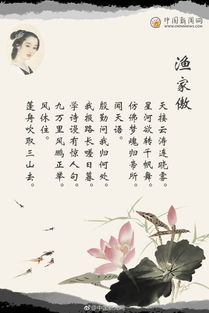 中国新闻网
WWW.CHINANEWS.COM
渔家傲
天接云涛连晓雾。
星河欲转千帆舞。
仿佛梦魂归帝所。
闻天语。
殷勤问我归何处
我报路长嗟日暮。
学诗谩有惊人句。
九万里风鹏正举。
风休住。
蓬舟吹取三山去。
@中国新闻网